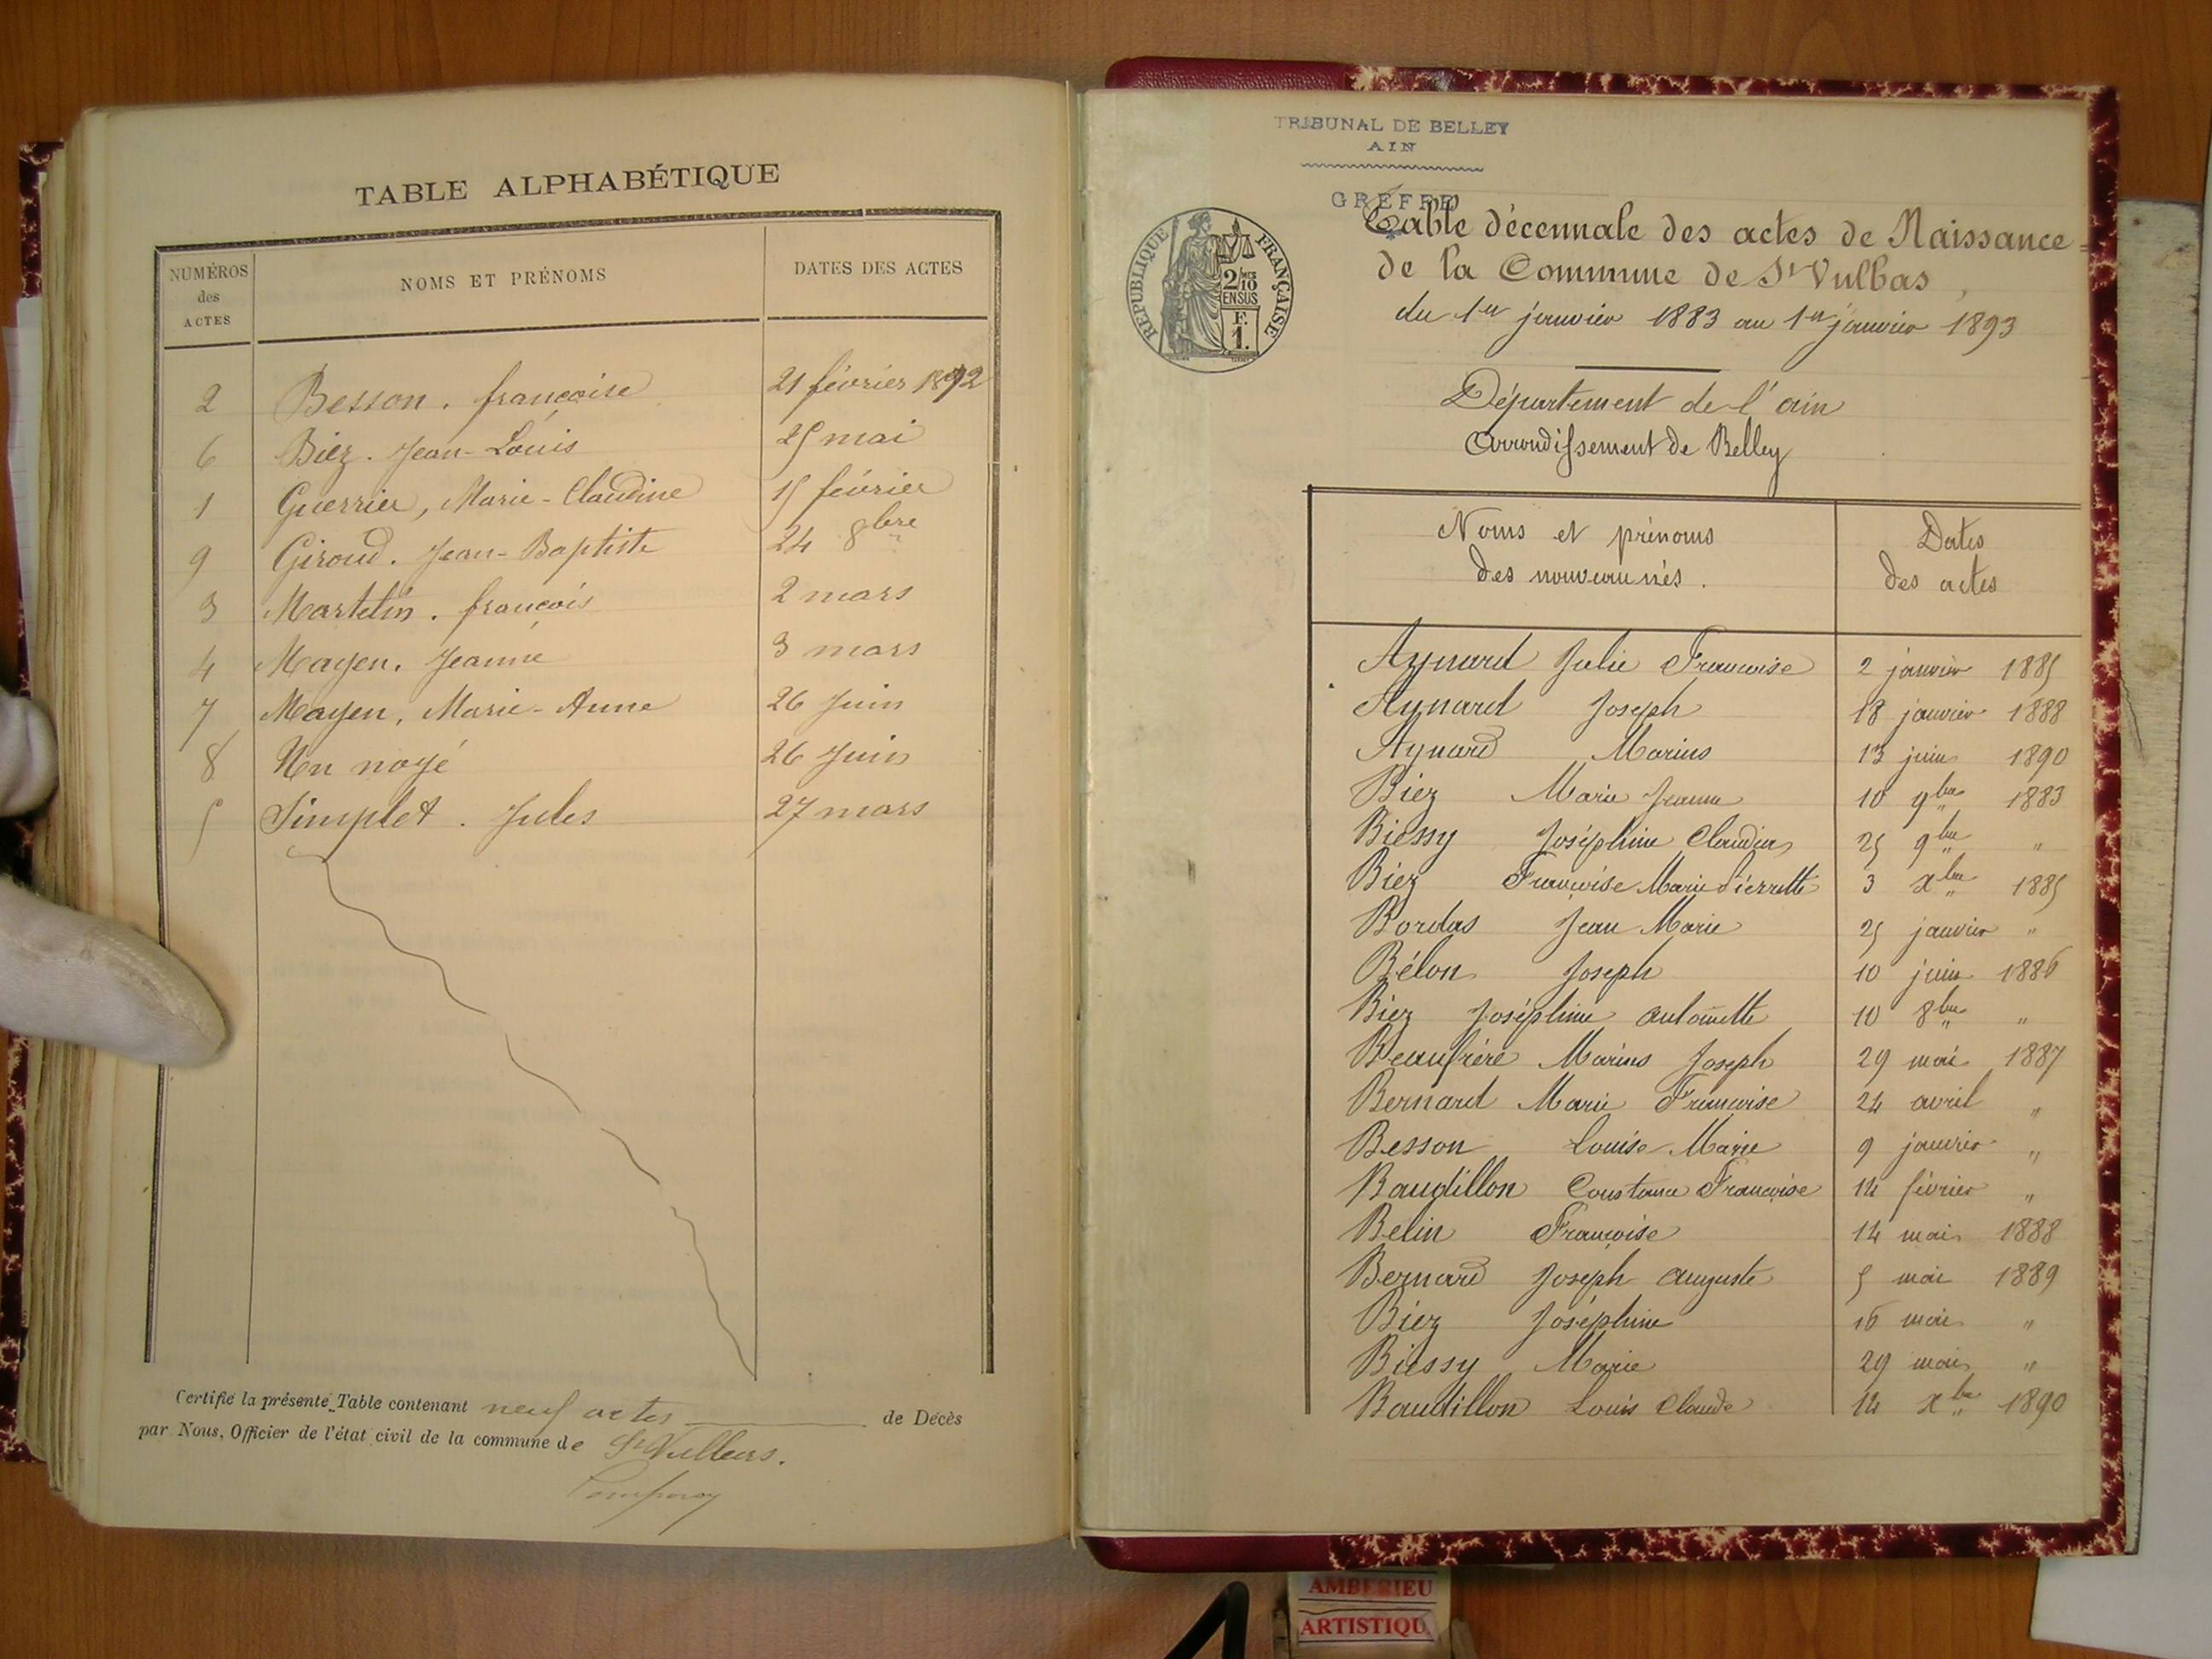 TABLE ALPHABÉTIQUE
NUMÉROS des ACTES NOMS ET PRÉNOMS DATES DES ACTES
2 Besson. françoise 21 février 1892
6 Biez. Jean-Louis 25 mai
1 Guerrier, Marie-Claudine 15 février
9 Giroud. Jean-Baptiste 24 8bre
3 Martelin. françois 2 mars
4 Mayen. Jeanne 3 mars
7 Mayen, Marie-Anne 26 Juin
8 Un noyé 26 Juin
5 Simplet. Jules 27 mars
Certifié la présente Table contenant neuf actes de Décès
par Nous, Officier de l'état civil de la commune de St Vulbas.
TRIBUNAL DE BELLEY
AIN
GREFFE
RÉPUBLIQUE FRANÇAISE
2/10 EN SUS
F. 1.
Table décennale des actes de Naissance
de la Commune de St Vulbas,
du 1er janvier 1883 au 1er janvier 1893
Département de l'ain
Arrondissement de Belley
Noms et prénoms Dates
des nouveaunés. des actes
Aynard Julie Francoise 2 janvier 1885
Aynard Joseph 18 janvier 1888
Aynard Marius 13 juin 1890
Biez Marie Jeanne 10 9bre 1883
Biessy Joséphine Claudine 25 9bre "
Biez Françoise Marie Pierrette 3 xbre 1885
Bordas Jean Marie 25 janvier "
Bélon Joseph 10 juin 1886
Biez Joséphine antoinette 10 8bre "
Beaufrère Marius Joseph 29 mai 1887
Bernard Marie Francoise 24 avril "
Besson Louise Marie 9 janvier "
Baudillon Constance Françoise 14 février "
Belin Françoise 14 mai 1888
Bernard Joseph auguste 5 mai 1889
Biez Joséphine 16 mai "
Biessy Marie 29 mai "
Baudillon Louis Claude 14 xbre 1890
AMBERIEU
ARTISTIQU